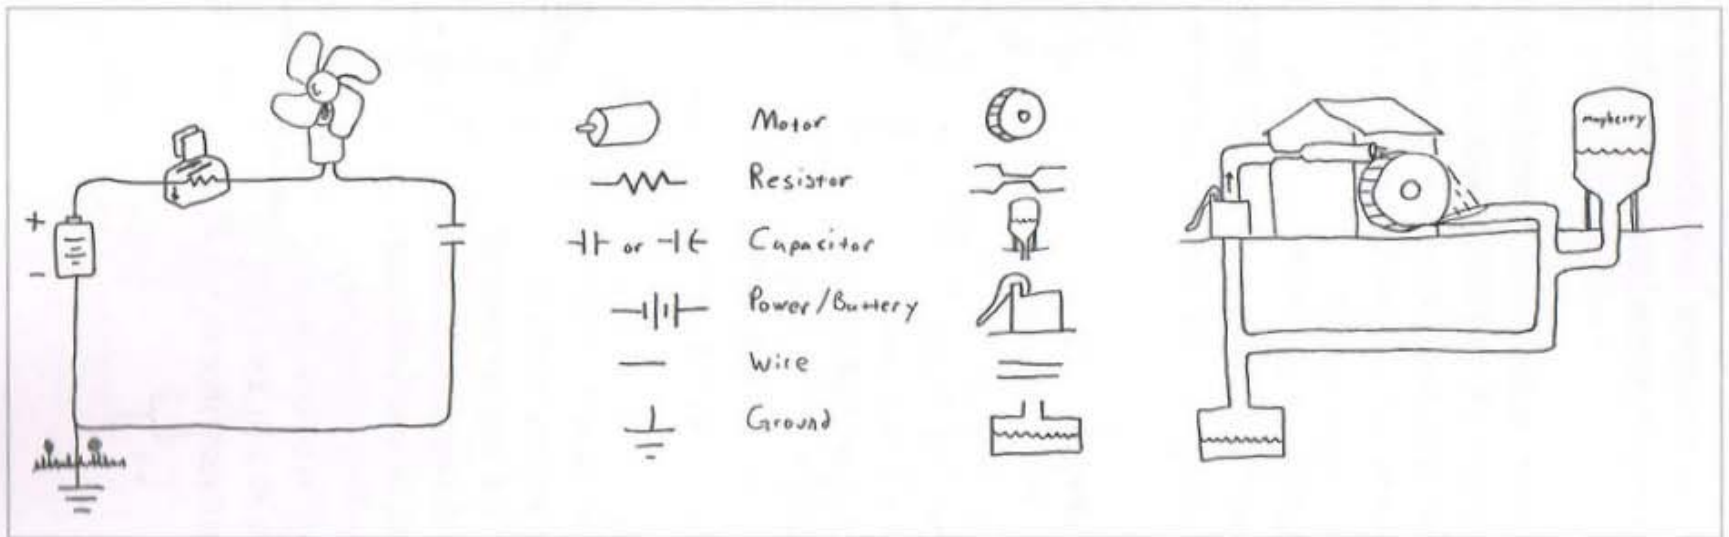 +
-
Motor
Resistor
or
Capacitor
Power/Battery
Wire
Ground
mayberry